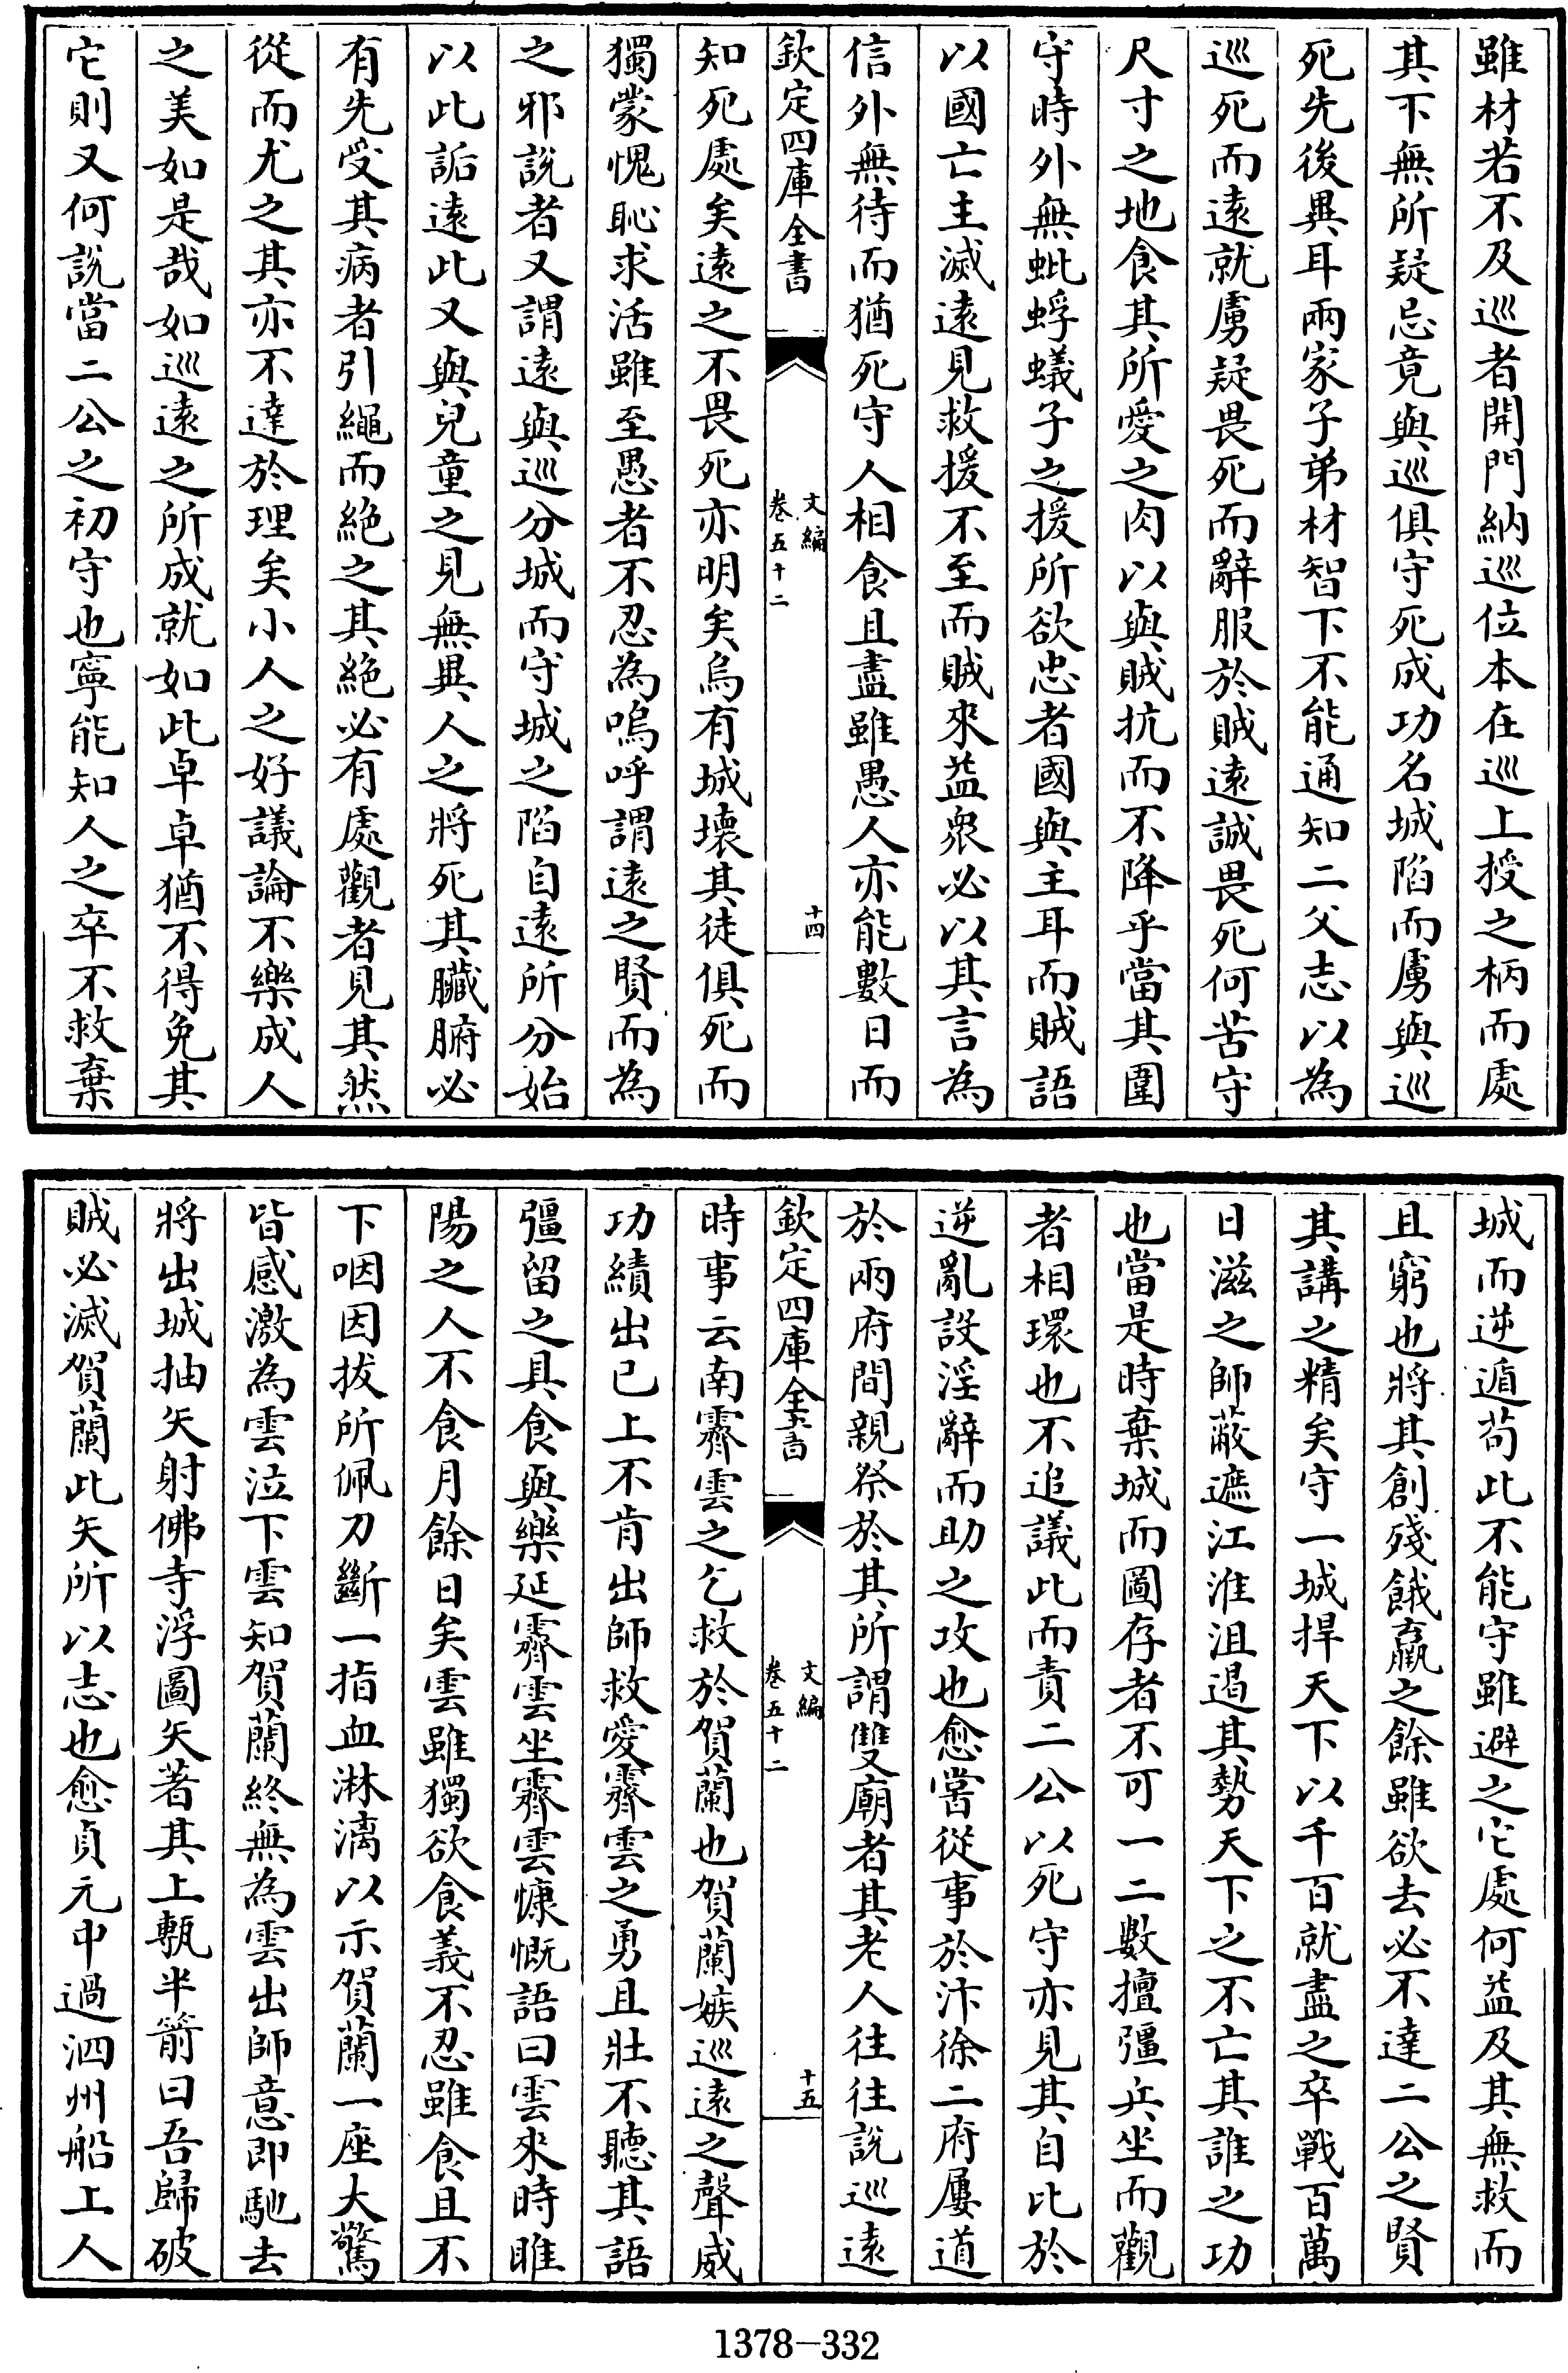 雖材若不及巡者開門納巡位本在巡上授之柄而處
其下無所疑忌竟與巡俱守死成功名城陷而虜與巡
死先後異耳兩家子弟材智下不能通知二父志以為
巡死而遠就虜疑畏死而辭服於賊遠誠畏死何苦守
尺寸之地食其所愛之肉以與賊抗而不降乎當其圍
守時外無蚍蜉蟻子之援所欲忠者國與主耳而賊語
以國亡主滅遠見救援不至而賊來益衆必以其言為
信外無待而猶死守人相食且盡雖愚人亦能數日而
欽定四庫全書
文編
卷五十二
十四
知死處矣遠之不畏死亦明矣烏有城壞其徒俱死而
獨蒙愧恥求活雖至愚者不忍為嗚呼謂遠之賢而為
之邪說者又謂遠與巡分城而守城之陷自遠所分始
以此詬遠此又與兒童之見無異人之將死其臟腑必
有先受其病者引繩而絶之其絶必有處觀者見其然
從而尤之其亦不達於理矣小人之好議論不樂成人
之美如是哉如巡遠之所成就如此卓卓猶不得免其
它則又何說當二公之初守也寧能知人之卒不救棄
城而逆遁苟此不能守雖避之它處何益及其無救而
且窮也將其創殘餓羸之餘雖欲去必不達二公之賢
其講之精矣守一城捍天下以千百就盡之卒戰百萬
日滋之師蔽遮江淮沮遏其勢天下之不亡其誰之功
也當是時棄城而圖存者不可一二數擅彊兵坐而觀
者相環也不追議此而責二公以死守亦見其自比於
逆亂設淫辭而助之攻也愈嘗從事於汴徐二府屢道
於兩府間親祭於其所謂雙廟者其老人往往說巡遠
欽定四庫全書
文編
卷五十二
十五
時事云南霽雲之乞救於賀蘭也賀蘭嫉巡遠之聲威
功績出已上不肯出師救愛霽雲之勇且壯不聽其語
彊留之具食與樂延霽雲坐霽雲慷慨語曰雲來時睢
陽之人不食月餘日矣雲雖獨欲食義不忍雖食且不
下咽因拔所佩刀斷一指血淋漓以示賀蘭一座大驚
皆感激為雲泣下雲知賀蘭終無為雲出師意即馳去
將出城抽矢射佛寺浮圖矢著其上甎半箭曰吾歸破
賊必滅賀蘭此矢所以志也愈貞元中過泗州船上人
1378-332